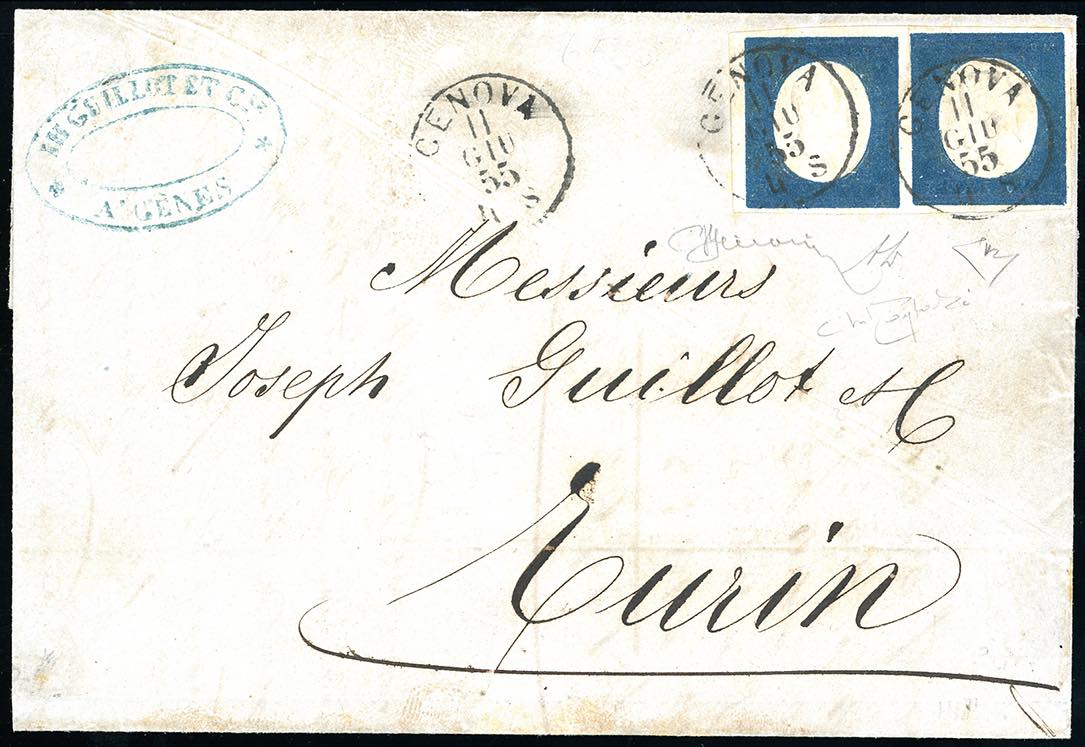 GUILLOT ET C.IE
A GÊNES
GENOVA
11
GIU
55
4 S
GENOVA
11
GIU
55
4 S
GENOVA
11
GIU
55
4 S
Messieurs
Joseph Guillot & C
Turin